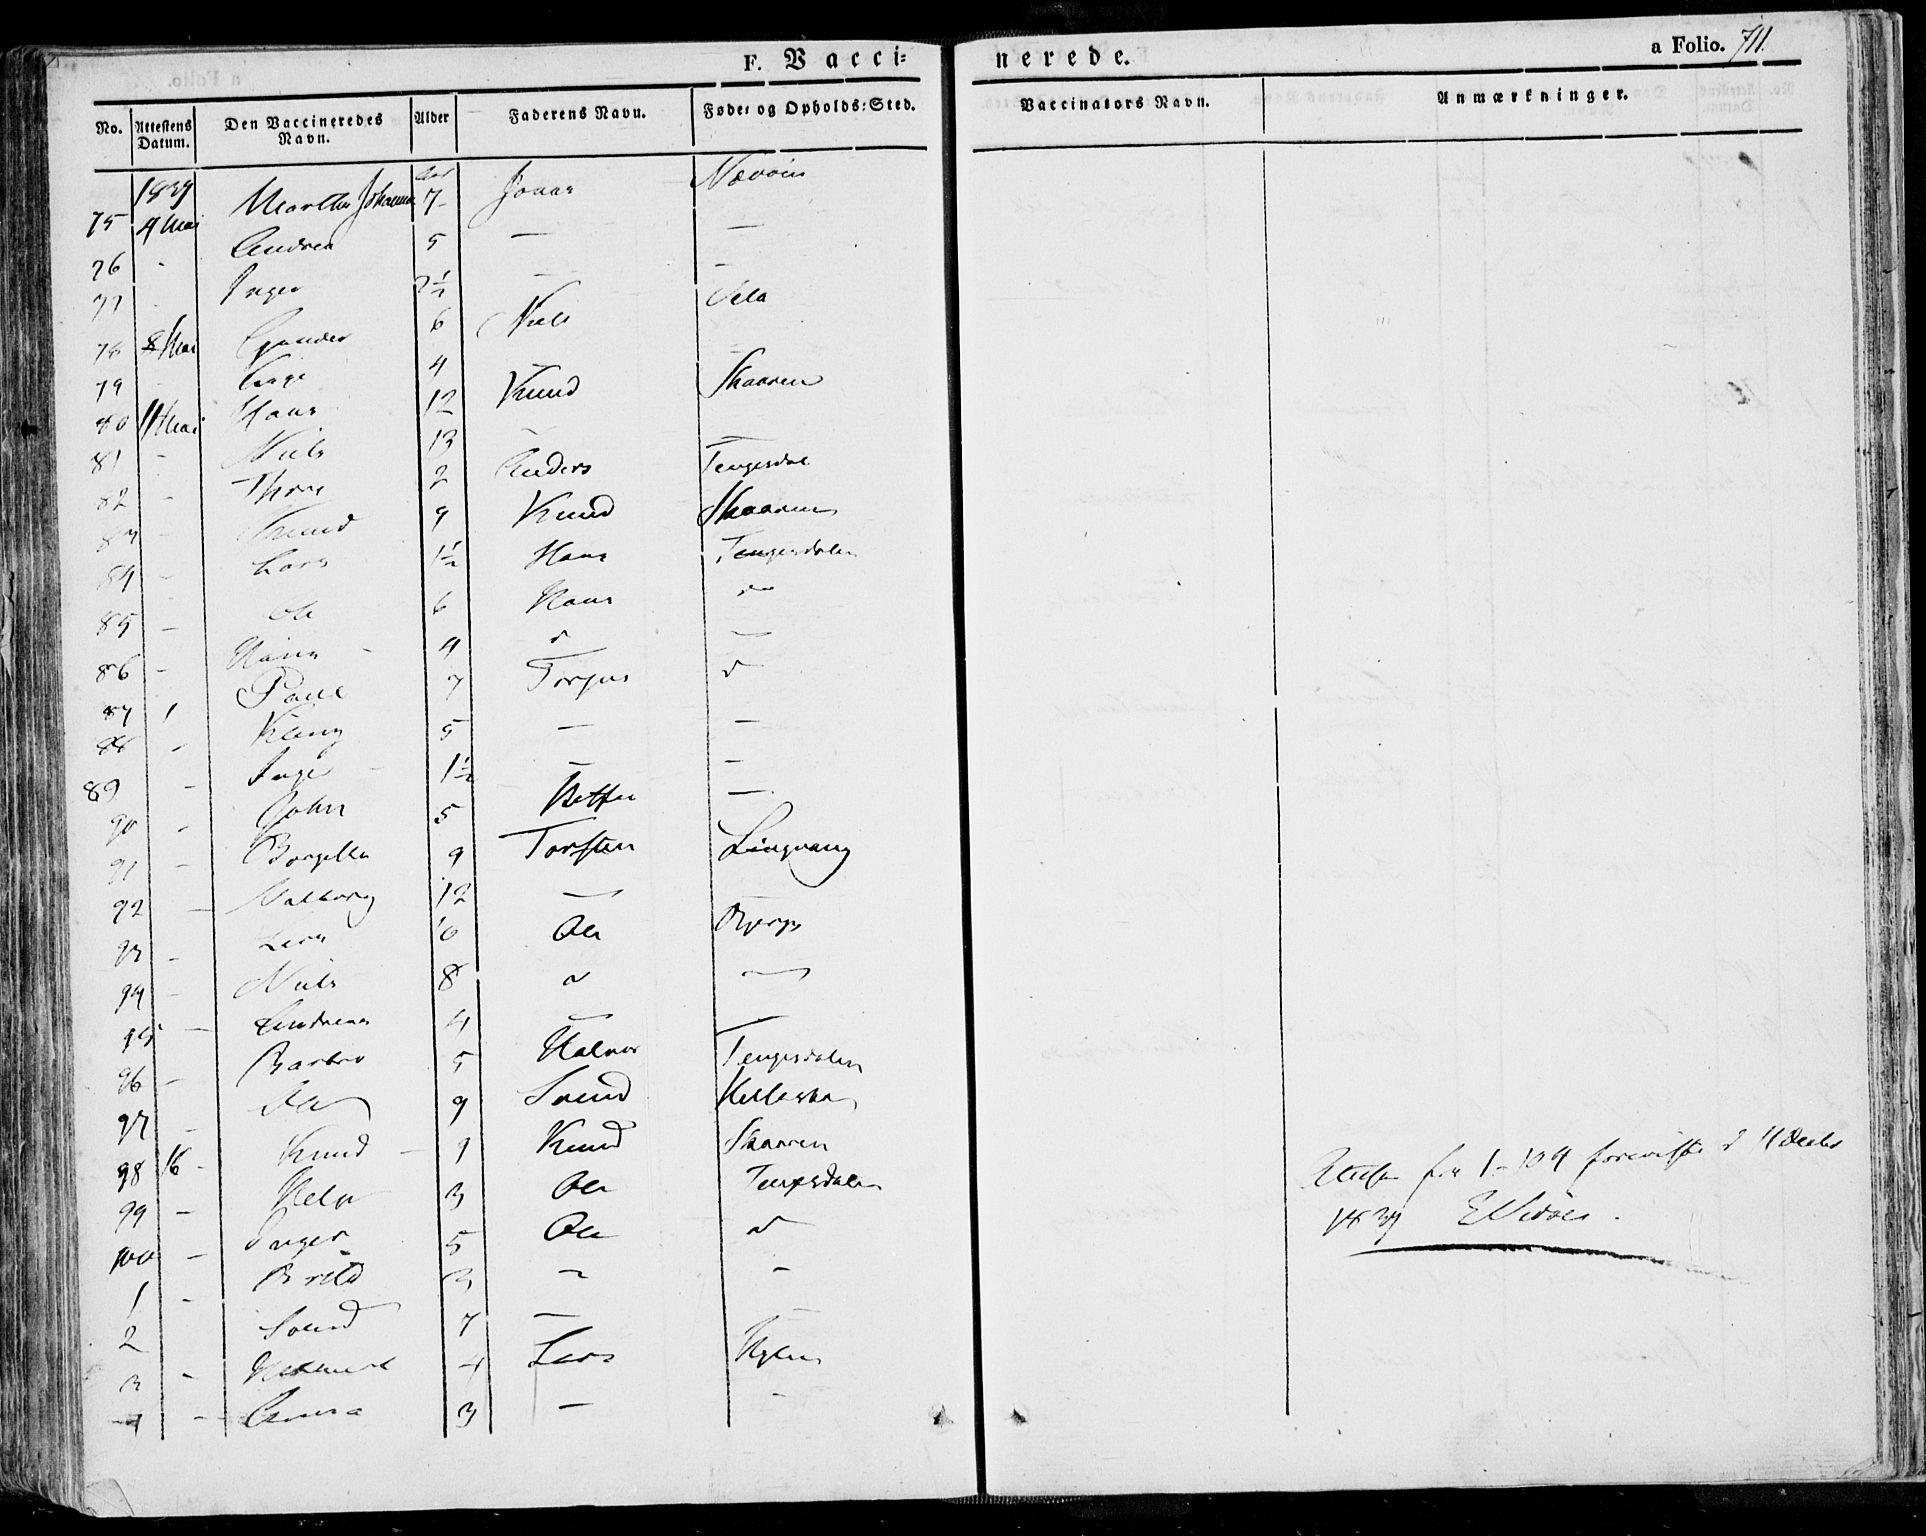 F. Vacci-
nerede.
a Folio. 711.
No. Attestens Datum. Den Vaccineredes Navn. Alder Faderens Navn. Føde- og Opholds-Sted. Vaccinators Navn. Anmærkninger.
1839 Aar
75 4 Mai Martha Johanna 7 Jonas
76 - Andrea 5 — —
77 Inger 2½ — -
78 8 Mai Gunder 6 Niels Sela
79 4
80 11 Mai Hans 12 Knud Skaaren
81 - Niels 13 -
82 - Thore 2 Anders Tengesdal
83 - Knud 9 Knud Skaaren
84 - Lars 1½ Hans Tengesdalen
85 - Ole 6 Hans do
86 - Hans 4 d —
87 Paul 7 Torger d
88 - 5 — —
89 - Inger 1½ — -
90 - John 5 —
91 - Borgilla 9 Torsten Lingvang
92 - Valborg 12 —
93 - 10 Ole
94 - Niels 8 d —
95 - Andreas 4 —
96 - Barbro 5 Halvor Tengesdalen
97 - Ole 9 Svend
98 16 - Knud 9 Knud Skaaren
99 - Helge 3 Ole Tengesdalen
100 - Inger 5 Ole d
1 - Brita 3 - -
2 Svend 7 —
3 - 4 Lars Hylen
4 - Anna 3 — -
fra 1-104 foreviste d 11 Decbr
1839